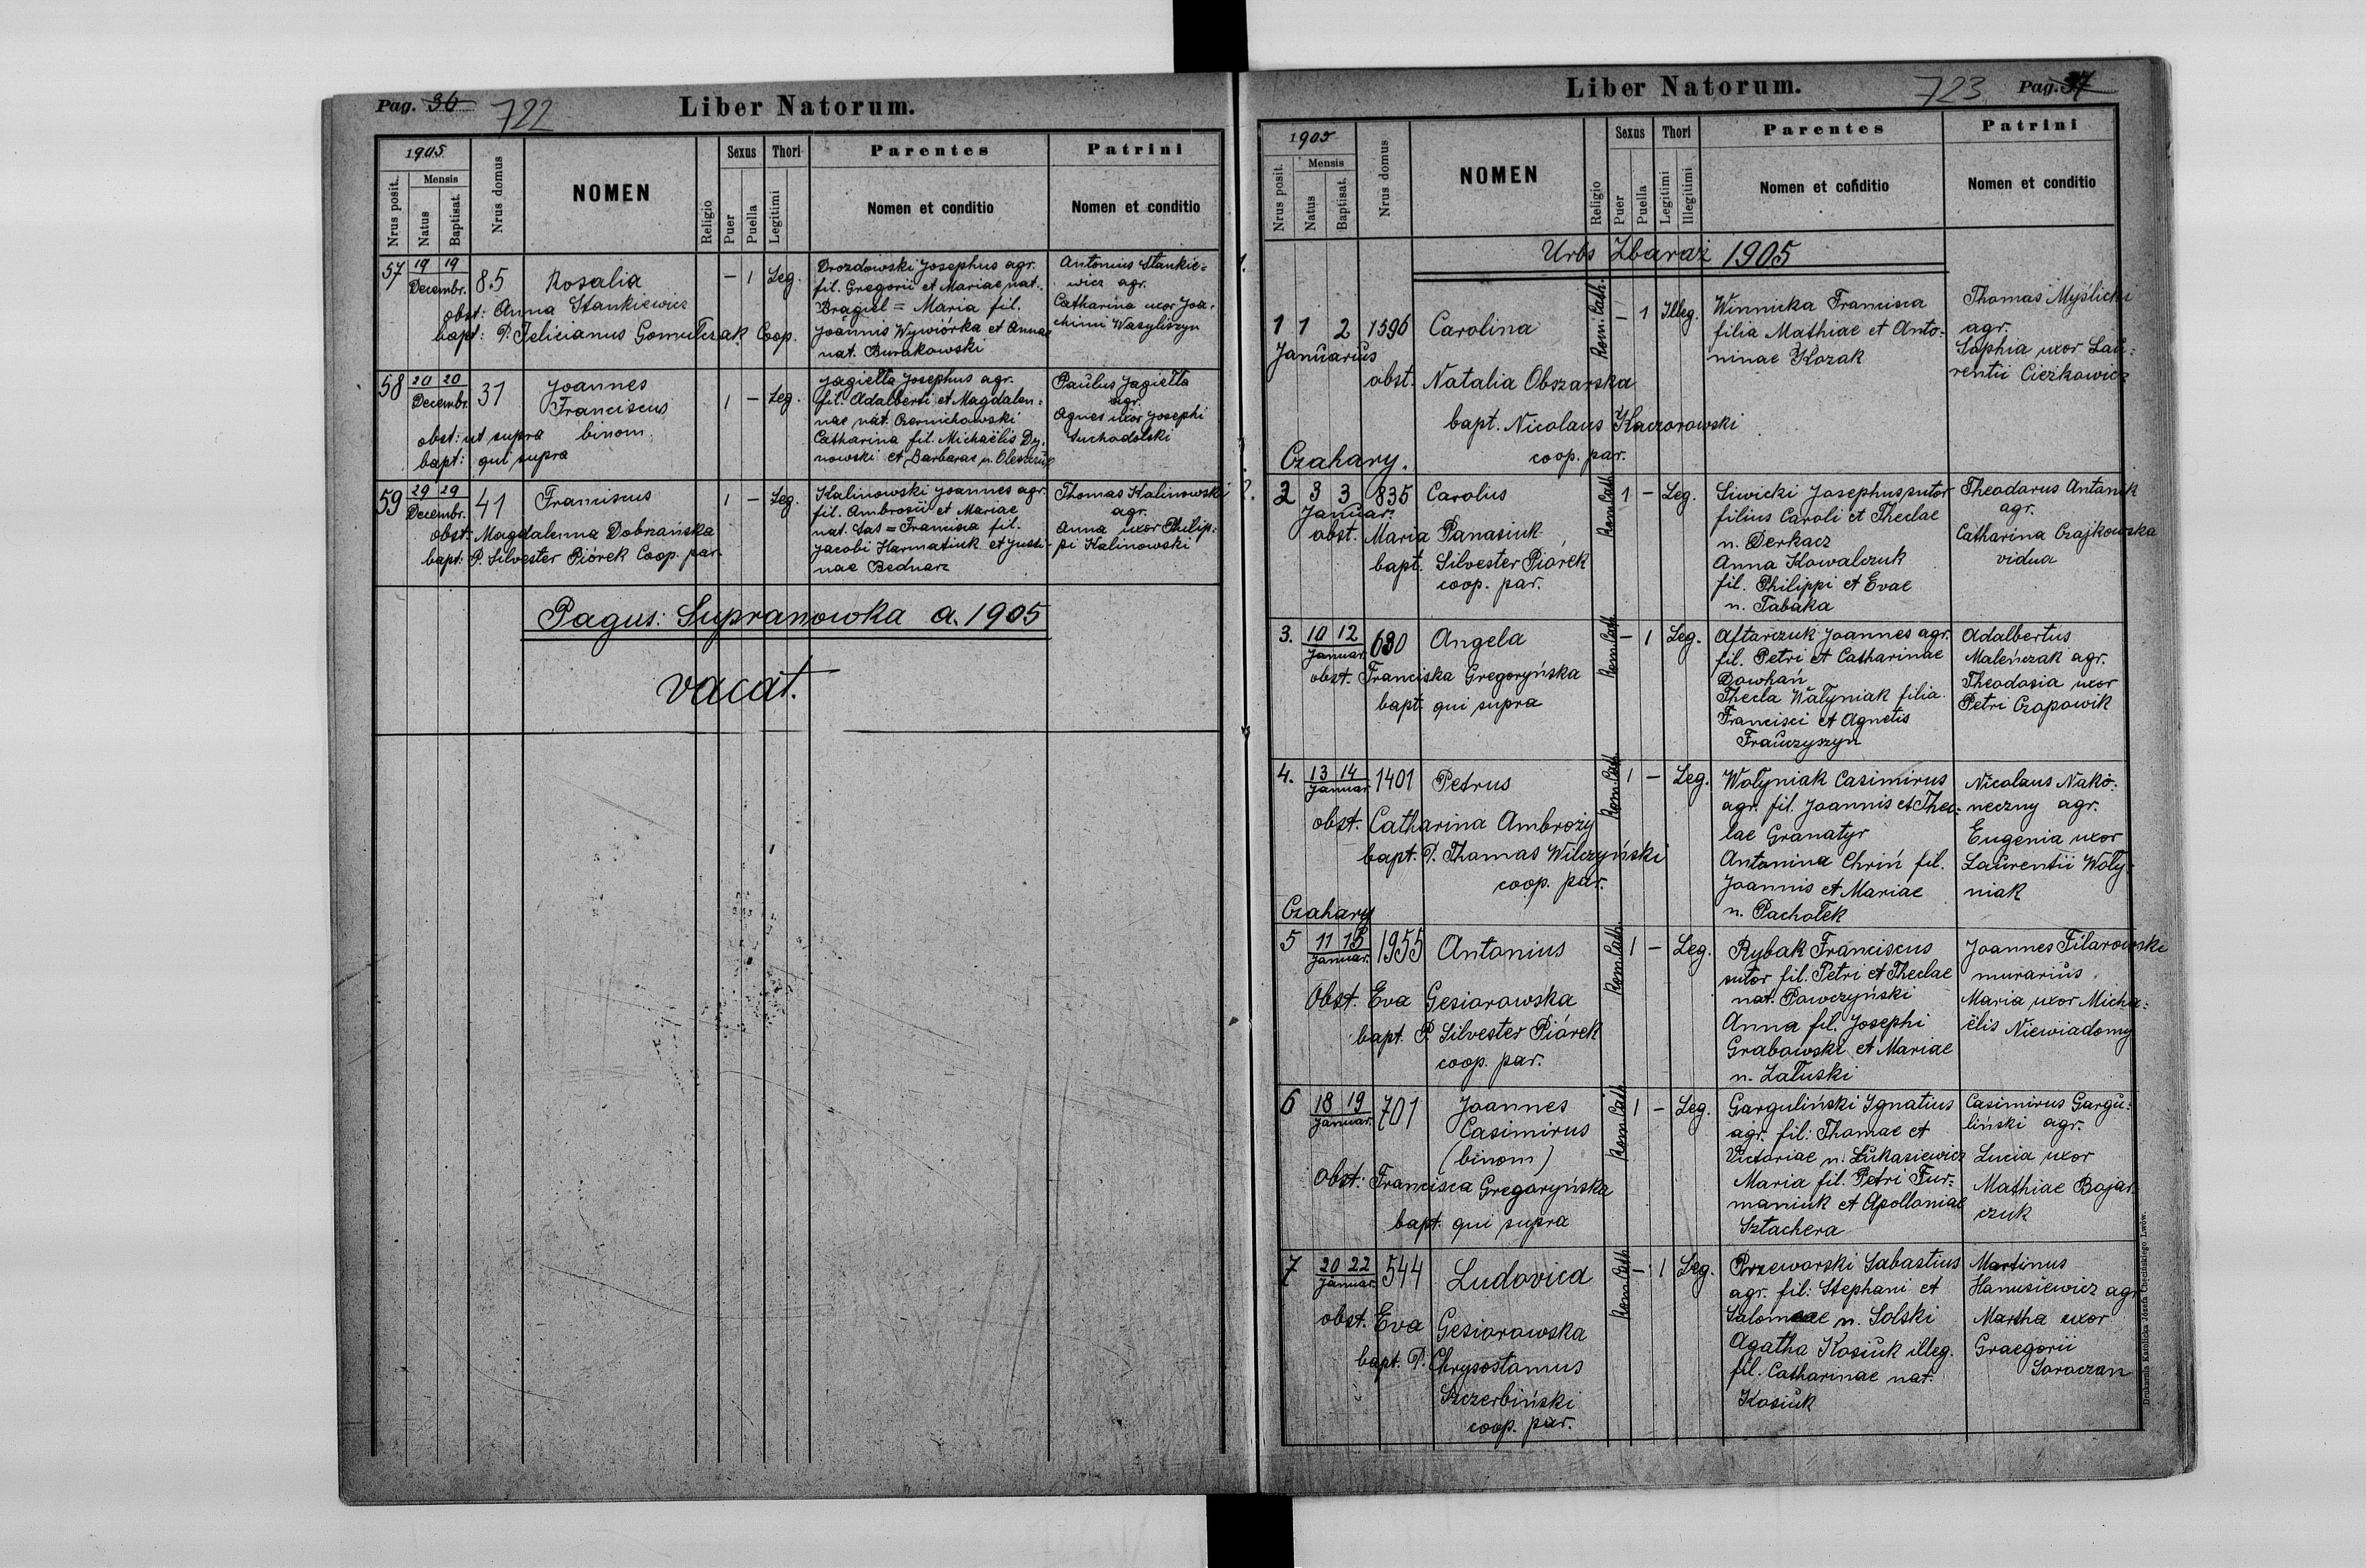 Pag. 36 722 Liber Natorum.
1905
Nrus posit.
Mensis
Natus
Baptisat.
Nrus domus
NOMEN
Religio
Sexus
Puer
Puella
Thori
Legitimi
Parentes
Nomen et conditio
Patrini
Nomen et conditio
57 19 19 Decembr. 85 Rosalia – 1 Leg.
obst: Anna Stankiewicz
bapt: P. Felicianus Gomulczak Coop.
Drozdowski Josephus agr.
fil. Gregorii et Mariae nat.
Brągiel = Maria fil.
Joannis Wywiórka et Annae
nat. Burakowski
Antonius Stankie=
wicz agr.
Catharina uxor Joa-
chimi Wasyliszyn
58 20 20 Decembr. 31 Joannes
Franciscus 1 – Leg.
binom.
obst: ut supra
bapt: qui supra
Jagiełła Josephus agr.
fil. Adalberti et Magdalen=
nae nat. Czernichowski
Catharina fil. Michaëlis Dy-
nowski et Barbarae n. Oleszczuk
Paulus Jagiełła
agr.
Agnes uxor Josephi
Suchodolski
59 29 29 Decembr. 41 Franciscus 1 – Leg.
obst: Magdalenna Dobrzańska
bapt: P. Silvester Piórek Coop. par.
Kalinowski Joannes agr.
fil. Ambrosii et Mariae
nat. Sas = Francisca fil.
Jacobi Harmatiuk et Justi-
nae Bednarz
Thomas Kalinowski
agr.
Anna uxor Philip-
pi Kalinowski
Pagus: Supranowka a. 1905
vacat.
Liber Natorum. 723 Pag. 37
1905
Nrus posit.
Mensis
Natus
Baptisat.
Nrus domus
NOMEN
Religio
Sexus
Puer
Puella
Thori
Legitimi
Illegitimi
Parentes
Nomen et conditio
Patrini
Nomen et conditio
Urbs Zbaraż 1905
1 1 2 1596 Carolina Rom. Cath. – 1 Illeg.
Januarius
obst. Natalia Obszarska
bapt. Nicolaus Kaczorowski
coop. par.
Winnicka Francisca
filia Mathiae et Anto-
ninae Kozak
Thomas Myślicki
agr.
Sophia uxor Lau-
rentii Ciezkowicz
Czahary.
2 3 3 835 Carolus Rom. Cath. 1 – Leg.
Januar.
obst. Maria Panasiuk
bapt. Silvester Piórek
coop. par.
Siwicki Josephus sutor
filius Caroli et Theclae
n. Derkacz
Anna Kowalczuk
fil. Philippi et Evae
n. Tabaka
Theodorus Antonik
agr.
Catharina Czajkowska
vidua
3. 10 12 Januar. 680 Angela Rom. Cath. – 1 Leg.
obst. Franciska Gregoryńska
bapt. qui supra
Aftarczuk Joannes agr.
fil. Petri et Catharinae
Dowhań
Thecla Wałyniak filia
Francisci et Agnetis
Frauczyszyn
Adalbertus
Maleńczak agr.
Theodosia uxor
Petri Czapowik
4. 13 14 Januar. 1401 Petrus Rom. Cath. 1 – Leg.
obst. Catharina Ambroży
bapt. P. Thomas Wilczyński
coop. par.
Wołyniak Casimirus
agr. fil. Joannis et Thec-
lae Granatyr
Antonina Chriń fil.
Joannis et Mariae
n. Pachołek
Nicolaus Nako-
neczny agr.
Eugenia uxor
Laurentii Woły-
niak
Czahary
5 11 15 Januar. 1955 Antonius Rom. Cath. 1 – Leg.
Obst. Eva Gesiorowska
bapt. P. Silvester Piórek
coop. par.
Rybak Franciscus
sutor fil. Petri et Theclae
nat. Pawczyński
Anna fil. Josephi
Grabowski et Mariae
n. Załuski
Joannes Filarowski
murarius
Maria uxor Micha-
ëlis Niewiadomy
6 18 19 Januar. 701 Joannes
Casimirus Rom. Cath. 1 – Leg.
(binom)
Obst: Francisca Gregoryńska
bapt. qui supra
Garguliński Ignatius
agr. fil: Thomae et
Victoriae n. Łukasiewicz
Maria fil. Petri Fur-
maniuk et Apolloniae
Sztachera
Casimirus Gargu-
liński agr.
Lucia uxor
Mathiae Bojar-
czuk
7 20 22 Januar. 544 Ludovica Rom. Cath. – 1 Leg.
obst. Eva Gesiorowska
bapt. P. Chrysostomus
Szczerbiński
coop. par.
Przeworski Sabastius
agr. fil: Stephani et
Salomeae n. Solski
Agatha Kosiuk illeg.
fil. Catharinae nat.
Kosiuk
Martinus
Hanusiewicz agr.
Martha uxor
Graegorii
Soroczan
Drukarnia Katolicka Józefa Chęcińskiego Lwów.